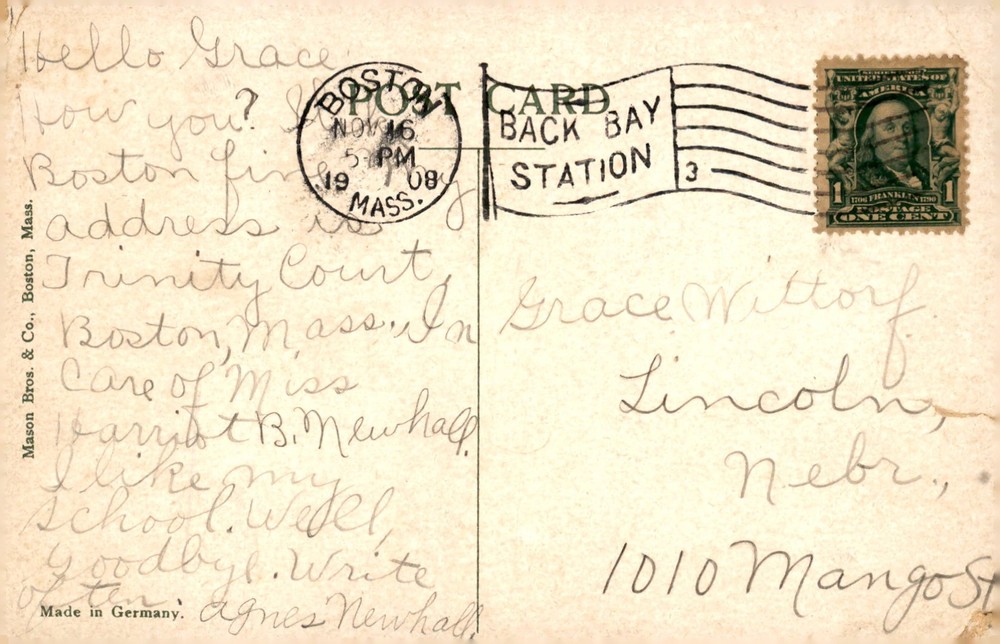 Hello Grace.
How you?
Boston fine My
address is
Trinity Court,
Boston, Mass. In
Care of Miss
Harriot B. Newhall.
I like my
school. Well,
Goodbye. Write
often. Agnes Newhall.
Mason Bros. & Co., Boston, Mass.
Made in Germany.
POST CARD
BOSTON
NOV 16
5 PM
1908
MASS.
BACK BAY
STATION
3
SERIES 1902
UNITED STATES OF
AMERICA
1 1
1706 FRANKLIN 1790
POSTAGE
ONE CENT
Grace Wittorf
Lincoln,
Nebr.,
1010 Mango St